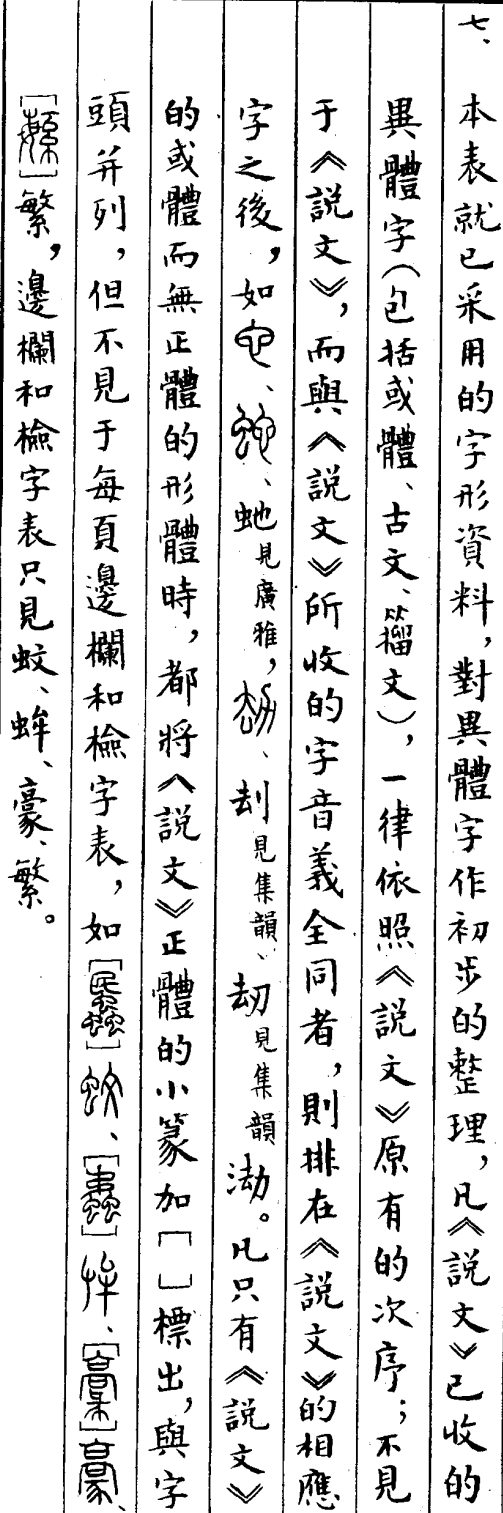 七、本表就已采用的字形資料，對異體字作初步的整理，凡《説文》已收的
異體字（包括或體、古文、籀文），一律依照《説文》原有的次序；不見
于《説文》，而與《説文》所收的字音義全同者，則排在《説文》的相應
字之後，如、、虵見廣雅，、刦見集韻、刧見集韻。凡只有《説文》
的或體而無正體的形體時，都將《説文》正體的小篆加［］標出，與字
頭并列，但不見于每頁邊欄和檢字表，如［］、［］、［］、
［］繁，邊欄和檢字表只見蚊、蛑、豪、繁。